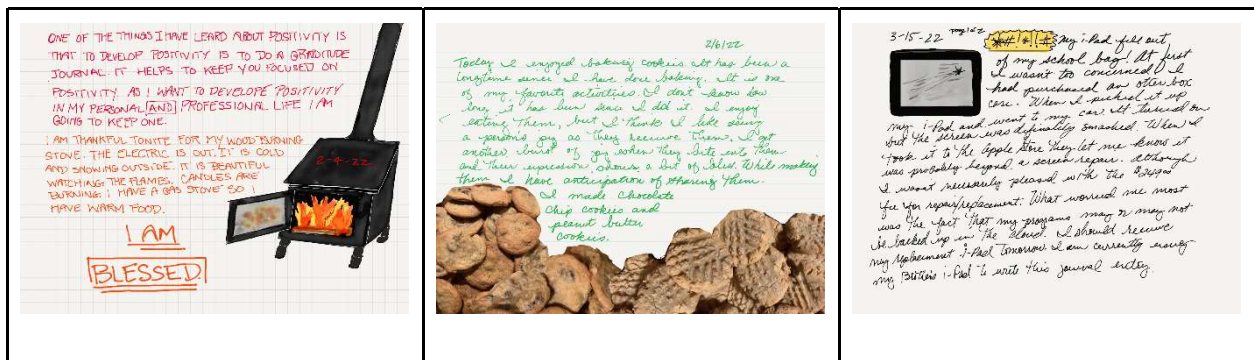 ONE OF THE THINGS I HAVE LEARD ABOUT POSITIVITY IS
THAT TO DEVELOP POSITIVITY IS TO DO A GRADITUDE
JOURNAL. IT HELPS TO KEEP YOU FOCUSED ON
POSITIVITY. AS I WANT TO DEVELOPE POSITIVITY
IN MY PERSONAL AND PROFESSIONAL LIFE I AM
GOING TO KEEP ONE.
I AM THANKFUL TONITE FOR MY WOOD BURNING
STOVE. THE ELECTRIC IS OUT. IT IS COLD
AND SNOWING OUTSIDE. IT IS BEAUTIFUL
WATCHING THE FLAMES. CANDLES ARE
BURNING. I HAVE A GAS STOVE SO I
HAVE WARM FOOD.
2-4-22
I AM
BLESSED.
2/6/22
Today I enjoyed baking cookies. It has been a
longtime since I have done baking. It is one
of my favorite activities. I don't know how
long it has been since I did it. I enjoy
eating them, but I think I like seeing
a person's joy as they receive them. I get
another burst of joy when they bite into them
and their expression shows a bit of bliss. While making
them I have anticipation of sharing them.
I made Chocolate
Chip cookies and
peanut butter
cookies.
3-15-22
my i-Pad fell out
of my school bag! At first
I wasn't too concerned. I
had purchased an otter box
case. When I picked it up
my i-Pad and went to my car. It turned on
but the screen was definately smashed. When I
took it to the Apple Store they let me know it
was probably beyond a screen repair. Although
I wasn't necessarily pleased with the $249.00
fee for repair/replacement. What worried me most
was the fact that my programs may or may not
be backed up in the cloud. I should receive
my replacement i-Pad tomorrow. I am currently using
my Brother's i-Pad to write this journal entry.